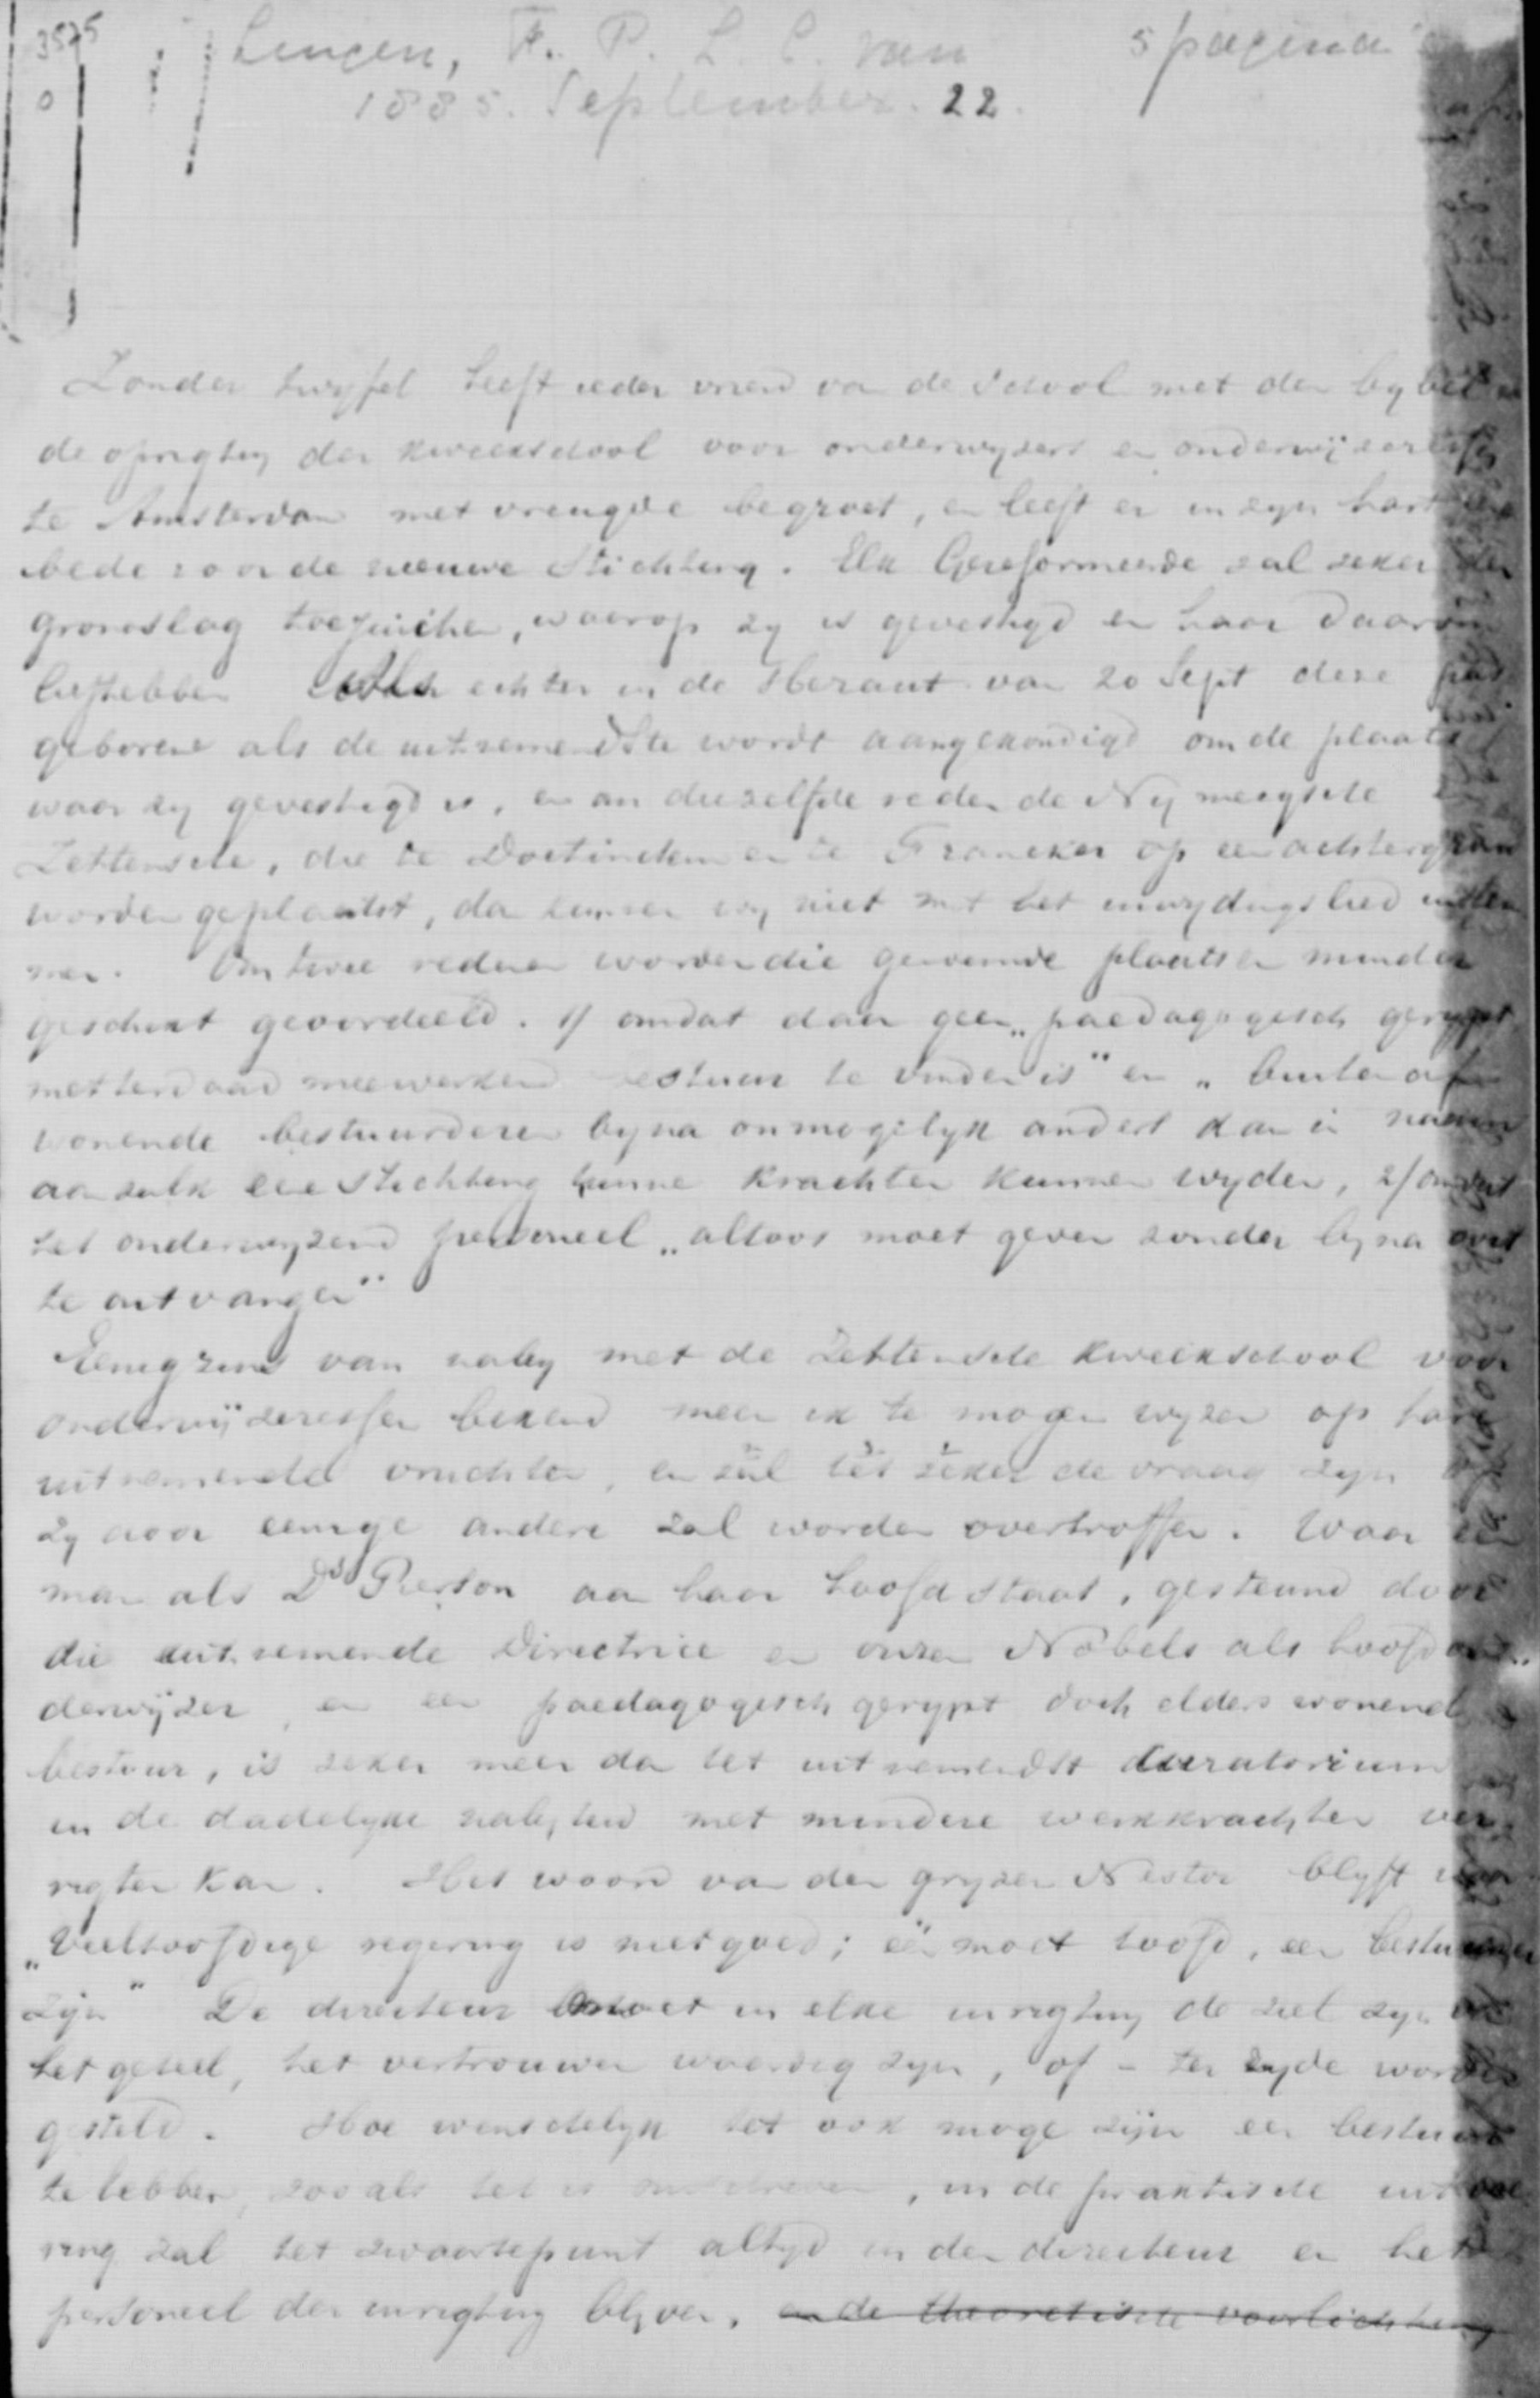 3525
0
Lingen, F. P. L. C. van 5 pagina's
1885. September. 22.
Zonder twyfel heeft ieder vriend van de School met den bybel
de oprigting der kweekschool voor onderwyzers en onderwijzeressen
te Amsterdam met vreugde begroet, en leeft er in zyn hart eene
bede voor de nieuwe Stichting. Elk Gereformeerde zal zeker den
grondslag toejuichen, waarop zy is gevestigd en haar daarom
liefhebben echter in de Heraut van 20 Sept deze pas
geborene als de uitnemendste wordt aangekondigd om de plaats
waar zy gevestigd is, en om diezelfde reden de Nymeegsche en
Zettensche, die te Doetinchem en te Franeker op een achtergrond
worden geplaatst, dan kunnen wy niet met het inwydingslied instem
men. Om twee redenen worden die genoemde plaatsen minder
geschikt geoordeeld. 1/ omdat daar geen „paedagogisch gerypt
metterdaad meewerkend bestuur te vinden is" en „buiten af
wonende bestuurderen byna onmogelyk anders dan in naam
aan zulk eene Stichting hunne krachten kunnen wyden, 2/ omdat
het onderwyzend personeel „altoos moet geven zonder byna ooit
te ontvangen"
Eenigzins van naby met de Zettensche kweekschool voor
onderwijzeressen bekend meen ik te mogen wyzen op hare
uitnemende vruchten, en zal het zeker de vraag zyn of
zy door eenige andere zal worden overtroffen. Waar een
man als Ds Pierson aan haar hoofd staat, gesteund door
die uitnemende Directrice en onzen Nobels als hoofdon„
derwijzer, en een paedagogisch gerypt doch elders wonend
bestuur, is zeker meer dan het uitnemendst Curatorium
in de dadelyke nabyheid met mindere werkkrachten ver„
rigten kan. Het woord van den gryzen Nestor blyft waar
„Veelhoofdige regering is niet goed; één moet hoofd, een bestuurder
zijn" De directeur moet in elke inrigting de ziel zyn van
het geheel, het vertrouwen waardig zyn, of - ter zyde worden
gesteld. Hoe wenschelyk het ook moge zijn een bestuur
te hebben, zooals het is , in de praktische uitvoe
ring zal het zwaartepunt altyd in den directeur en het
personeel der inrigting blyven, en de theoretische voorlichting